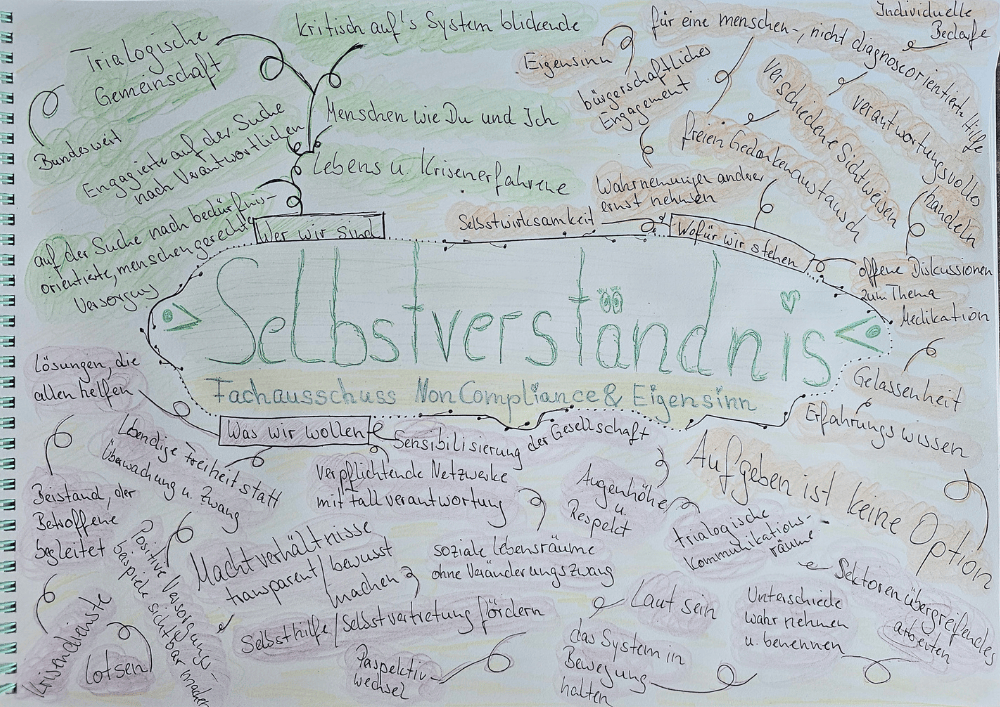 Selbstverständnis
Fachausschuss NonCompliance & Eigensinn
Wer wir sind
kritisch auf's System blickende
Trialogische
Gemeinschaft
Bundesweit
Menschen wie Du und Ich
Engagierte auf der Suche
nach Verantwortlichen
Lebens u. Krisenerfahrene
auf der Suche nach bedürfnis-
orientierte, menschengerechter
Versorgung
Wofür wir stehen
Selbstwirksamkeit
Wahrnemungen anderer
ernst nehmen
Eigensinn
bürgerschaftliches
Engagement
für eine menschen-, nicht diagnoseorientierte Hilfe
Individuelle
Bedarfe
freien Gedankenaustausch
Verschiedene Sichtweisen
verantwortungsvolles
handeln
offene Diskussionen
zum Thema
Medikation
Gelassenheit
Erfahrungswissen
Aufgeben ist keine Option
Was wir wollen
Lösungen, die
allen helfen
Beistand, der
Betroffene
begleitet
Krisendienste
Lotsen
Lebendige Freiheit statt
Überwachung u. Zwang
Positive Versorgungs-
beispiele sichtbar machen
Sensibilisierung der Gesellschaft
verpflichtende Netzwerke
mit Fallverantwortung
Machtverhältnisse
transparent/bewusst
machen
soziale Lebensräume
ohne Veränderungszwang
Selbsthilfe/Selbstvertretung fördern
Augenhöhe
u.
Respekt
trialogische
Kommunikations-
räume
Sektoren übergreifendes
arbeiten
Unterschiede
wahrnehmen
u. benennen
Laut sein
das System in
Bewegung
halten
Perspektiv-
wechsel